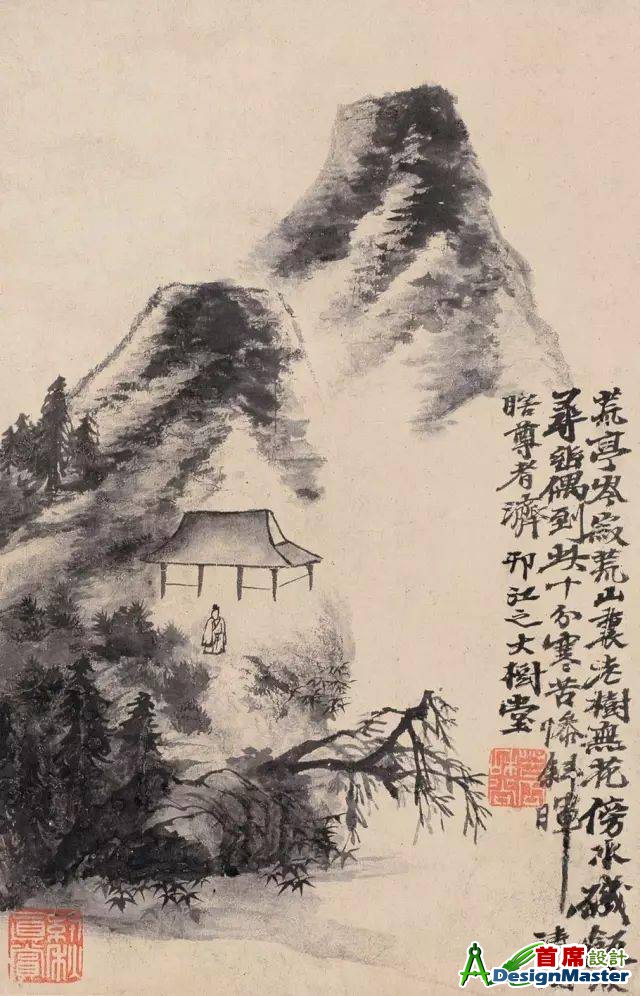 荒亭岑寂荒山裏老樹無花傍水磯飯後
尋詩偶到此十分寒苦慘斜暉清湘
瞎尊者濟 邗江之大樹堂
首席設計
ADesignMaster